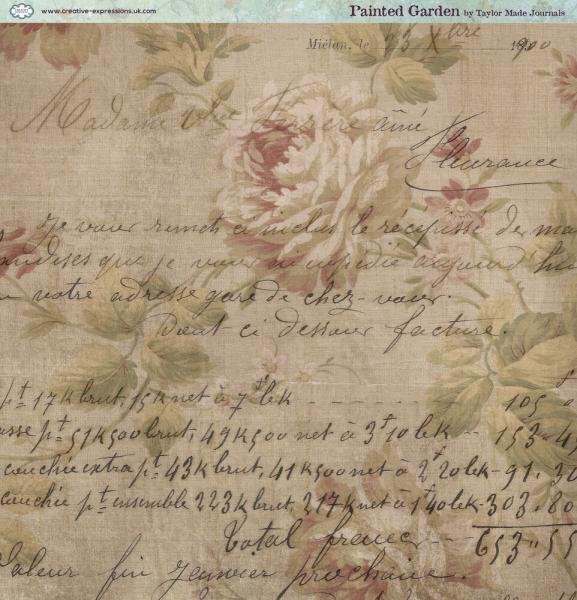 www.creative-expressions.uk.com
Painted Garden by Taylor Made Journals
Miélan, le 23 Xbre 1900
Madame Vve Ferrère aîné
Fleurance
Je vous remets ci inclus le récépissé de
que je vous ai expédié aujourd'hui
votre adresse gare de chez-vous.
Dont ci dessous facture.
pt 17k brut, 15k net à 7f le k 105
pt 51k500 brut, 49k500 net à 3f10 le k 153-45
couchée extra pt 43k brut, 41k500 net à 2f20 le k-91.30
couchée pt ensemble 223k brut, 217k net à 1f40 le k-303.80
Total francs 653-55
Valeur fin Janvier prochain.